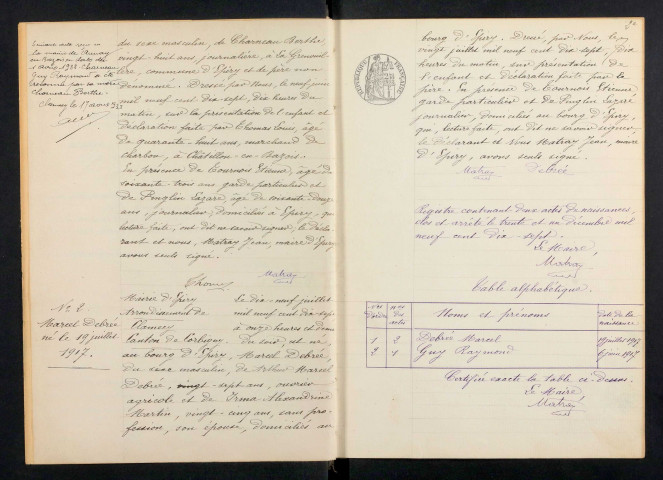 du sexe masculin, de Charneau Berthe
vingt-huit ans, journalière, à la Grenouil-
lère, commune d'Epiry et de père non
dénommé. Dressé par Nous, le neuf juin
mil neuf cent dix-sept, dix heures du
matin, sur la présentation de l'enfant et
déclaration faite par Thomas Louis, âgé
de quarante-huit ans, marchand de
charbon, à Châtillon-en-Bazois.
En présence de Tournois Etienne, âgé de
soixante-trois ans garde particulier et
de Pouglin Lazare, âgé de soixante-douze
ans, journalier, domiciliés à Epiry, qui
lecture faite, ont dit ne savoir signer, le décla-
rant et nous, Matray Jean, maire d'Epiry
avons seuls signé.
Thomas
Matray
N° 2
Marcel Debrée
né le 19 juillet
1917.
Mairie d'Epiry
Arrondissement de
Clamecy
Canton de Corbigny.
Le dix-neuf juillet
mil neuf cent dix-sept
à onze heures et demie
du soir, est né,
au bourg d'Epiry, Marcel Debrée,
du sexe masculin, de Arthur Marcel
Debré, vingt-sept ans, ouvrier
agricole et de Irma Alexandrine
Martin, vingt-cinq ans, sans pro-
fession, son épouse, domiciliés au
bourg d'Epiry. Dressé, par Nous, le
vingt juillet mil neuf cent dix-sept, dix
heures du matin, sur présentation de
l'enfant et déclaration faite par le
père. En présence de Tournois Etienne,
garde particulier et de Pouglin Lazare
journalier, domiciliés au bourg d'Epiry,
qui, lecture faite, ont dit ne savoir signer,
le déclarant et Nous Matray Jean, maire
d'Epiry, avons seuls signé.
Matray Debrée
Registre contenant deux actes de naissances,
clos et arrêté le trente et un décembre mil
neuf cent dix-sept.
Le Maire,
Matray
Table alphabétique.
Nos d'ordre Nos des actes Noms et prénoms Date de la naissance
1 2 Debrée Marcel 19 juillet 1917
2 1 Guy Raymond 8 juin 1917
Certifié exacte la table ci-dessus.
Le Maire
Matray